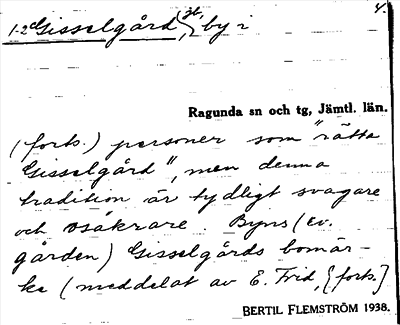 4.
1-2 Gisselgård, by i
Ragunda sn och tg, Jämtl. län.
(forts.) personer som "rätta
Gisselgård", men denna
tradition är tydligt svagare
och osäkrare. Byns (ev.
gården) Gisselgårds bomär-
ke (meddelat av E. Frid, {forts.}
BERTIL FLEMSTRÖM 1938.